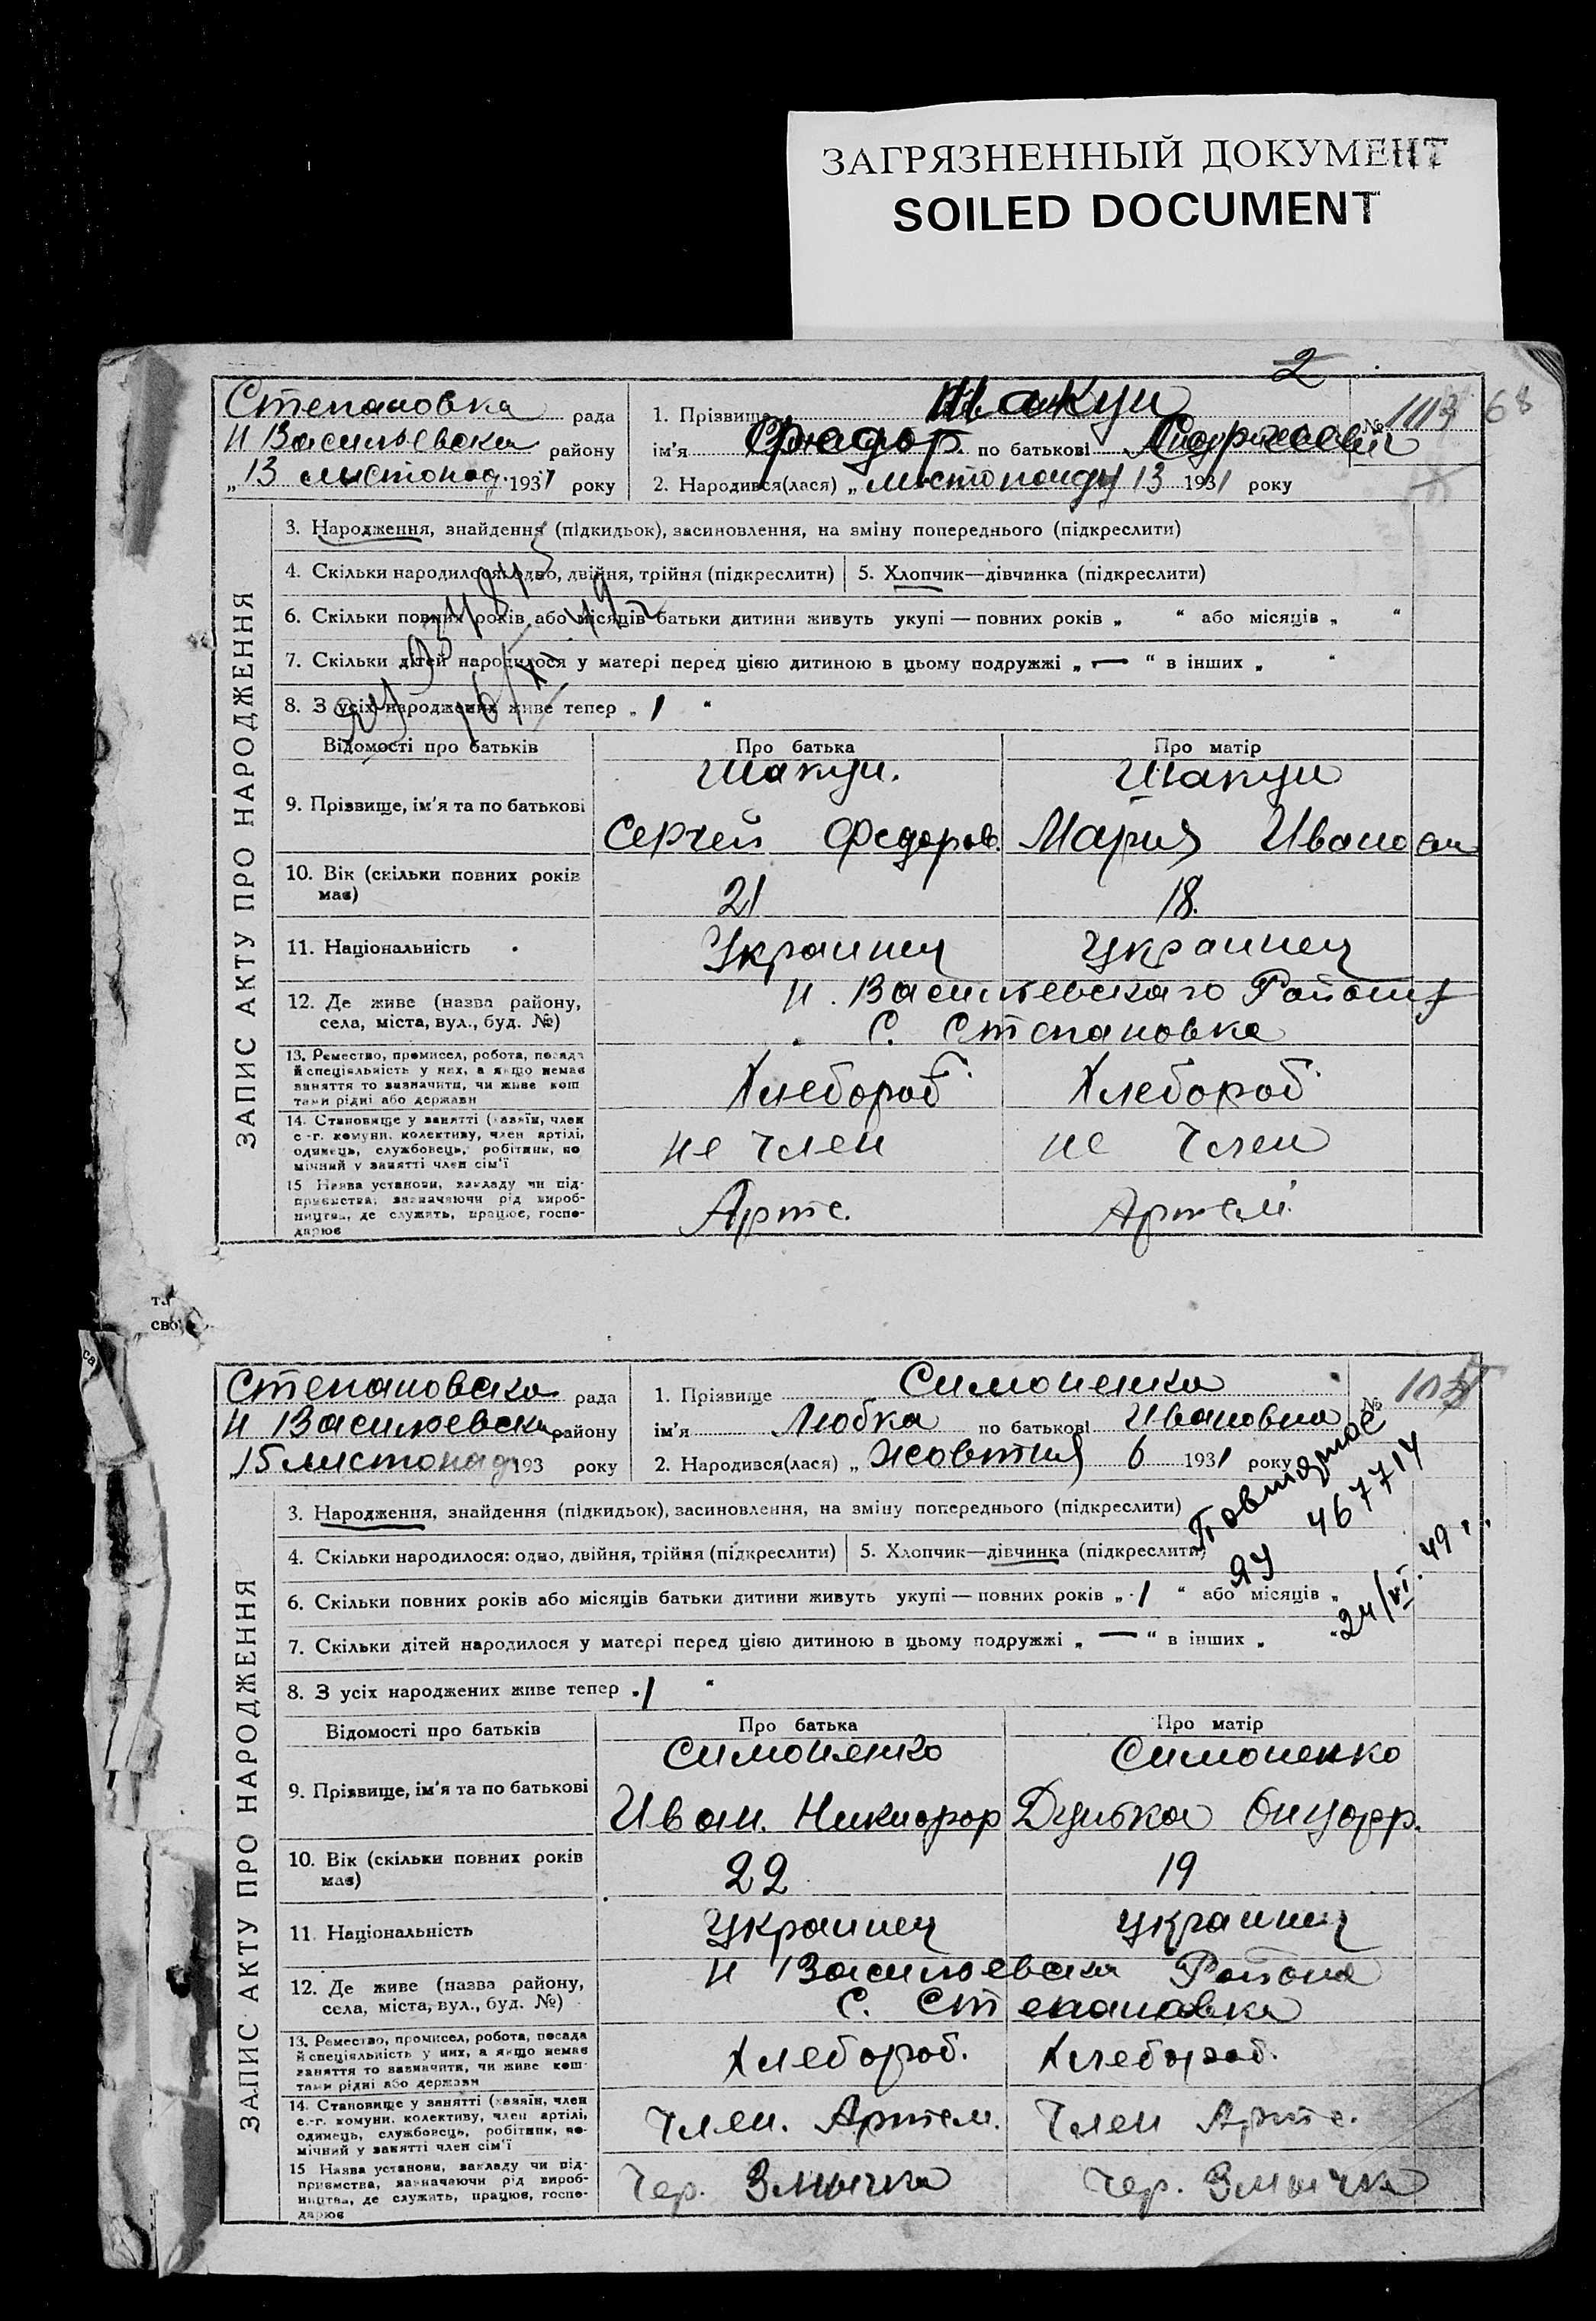 ЗАГРЯЗНЕННЫЙ ДОКУМЕНТ
SOILED DOCUMENT
2
68
Степановка рада
Н Васильевски району
„13 листопад. 1931 року
1. Прізвище Шакун
ім'я Фёдор по батькові Сергеевич
№
2. Народився(лася) „ листопаду 13 1931 року
ЗАПИС АКТУ ПРО НАРОДЖЕННЯ
3. Народження, знайдення (підкидьок), засиновлення, на зміну попереднього (підкреслити)
4. Скільки народилося: одно, двійня, трійня (підкреслити) 5. Хлопчик—дівчинка (підкреслити)
6. Скільки повних років або місяців батьки дитини живуть укупі — повних років „ “ або місяців „ “
7. Скільки дітей народилося у матері перед цією дитиною в цьому подружжі „ — “ в інших „ “
8. З усіх народжених живе тепер „ 1 “
Відомості про батьків Про батька Про матір
9. Прізвище, ім'я та по батькові
Шакун. Шакун
Сергей Федоров. Мария Иванов
10. Вік (скільки повних років має)
21 18.
11. Національність Украинец Украинец
12. Де живе (назва району, села, міста, вул., буд. №)
Н. Васильевскаго Района
С. Степановка
13. Ремество, промисел, робота, посада й спеціяльність у них, а якщо немає заняття то зазначити, чи живе кош тами рідні або держави
Хлебороб Хлебороб
14. Становище у занятті (хазяїн, член с.-г. комуни, колективу, член артілі, одинець, службовець, робітник, помічний у занятті член сім'ї
не член не член
15 Назва установи, закладу чи підприємства, зазначаючи рід виробництва, де служить, працює, господарює
Арте. Артели
та
сво
Степановска рада
Н Васильевски району
15 листопад 193 року
1. Прізвище Симоненко
ім'я Любка по батькові Ивановна
№
2. Народився(лася) „ жовтня 6 1931 року
Повторное
ЯУ 467714
24/VI. 49 г.
ЗАПИС АКТУ ПРО НАРОДЖЕННЯ
3. Народження, знайдення (підкидьок), засиновлення, на зміну попереднього (підкреслити)
4. Скільки народилося: одно, двійня, трійня (підкреслити) 5. Хлопчик—дівчинка (підкреслити)
6. Скільки повних років або місяців батьки дитини живуть укупі — повних років „ 1 “ або місяців „ “
7. Скільки дітей народилося у матері перед цією дитиною в цьому подружжі „ — “ в інших „
8. З усіх народжених живе тепер „ 1 “
Відомості про батьків Про батька Про матір
9. Прізвище, ім'я та по батькові
Симоненко Симоненко
Иван. Никифор Дунька
10. Вік (скільки повних років має)
22 19
11. Національність Украинец украинец
12. Де живе (назва району, села, міста, вул., буд. №)
Н Васильевски Района
С. Степановка
13. Ремество, промисел, робота, посада й спеціяльність у них, а якщо немає заняття то зазначити, чи живе кош-тами рідні або держави
Хлебороб. Хлебороб.
14. Становище у занятті (хазяїн, член с.-г. комуни, колективу, член артілі, одинець, службовець, робітник, помічний у занятті член сім'ї
Член. Артел. Член Арте.
15 Назва установи, закладу чи підприємства, зазначаючи рід виробництва, де служить, працює, господарює
Чер. Змычка Чер. Змычка